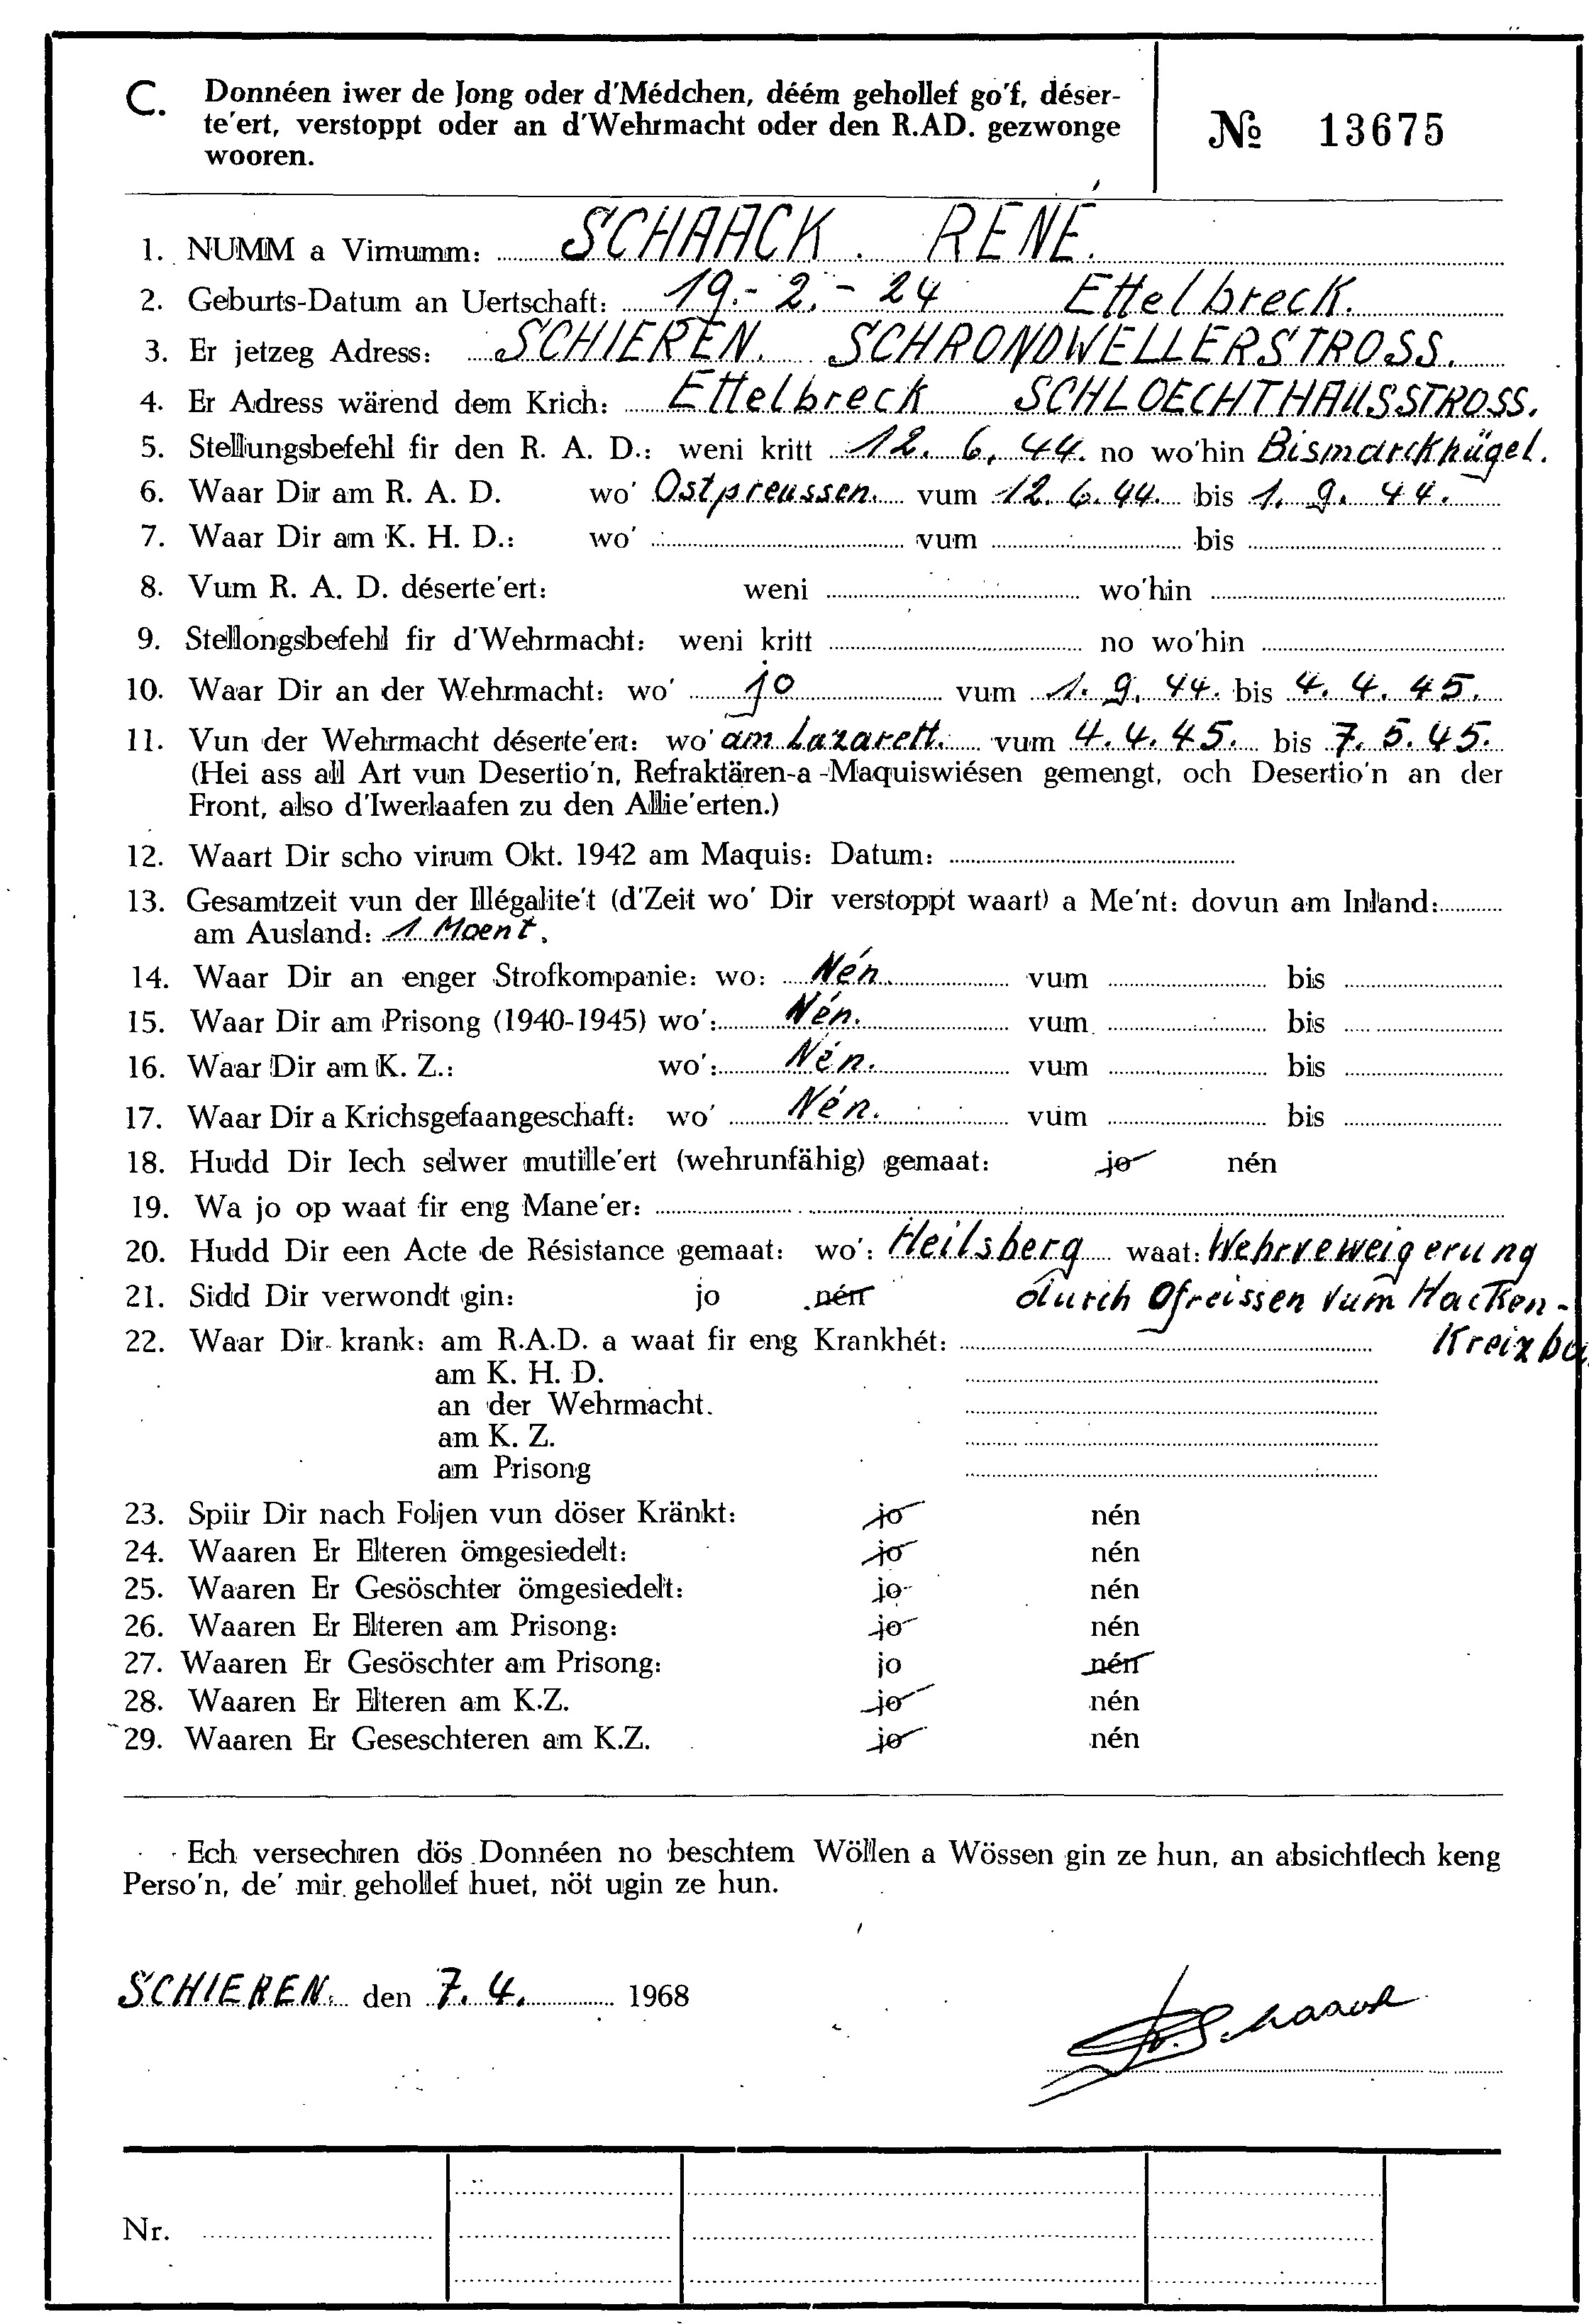 C. Donnéen iwer de Jong oder d'Médchen, déém gehollef go'f, déser-
te'ert, verstoppt oder an d'Wehrmacht oder den R.AD. gezwonge
wooren.
№ 13675
1. NUMM a Virnumm: SCHAACK. RENÉ.
2. Geburts-Datum an Uertschaft: 19.-2.-24 Ettelbreck.
3. Er jetzeg Adress: SCHIEREN. SCHRONDWELLERSTROSS.
4. Er Adress wärend dem Krich: Ettelbreck SCHLOECHTHAUSSTROSS.
5. Stellungsbefehl fir den R. A. D.: weni kritt 12. 6. 44. no wo'hin Bismarckhügel.
6. Waar Dir am R. A. D. wo' Ostpreussen. vum 12. 6. 44. bis 1. 9. 44.
7. Waar Dir am K. H. D.: wo' vum bis
8. Vum R. A. D. déserte'ert: weni wo'hin
9. Stellongsbefehl fir d'Wehrmacht: weni kritt no wo'hin
10. Waar Dir an der Wehrmacht: wo' jo vum 1. 9. 44. bis 4. 4. 45.
11. Vun der Wehrmacht déserte'ert: wo' am Lazarett. vum 4. 4. 45. bis 7. 5. 45.
(Hei ass all Art vun Desertio'n, Refraktären-a-Maquiswiésen gemengt, och Desertio'n an der
Front, also d'Iwerlaafen zu den Allie'erten.)
12. Waart Dir scho virum Okt. 1942 am Maquis: Datum:
13. Gesamtzeit vun der Illégalite't (d'Zeit wo' Dir verstoppt waart) a Me'nt: dovun am Inland:
am Ausland: 1 Moent.
14. Waar Dir an enger Strofkompanie: wo: Nén. vum bis
15. Waar Dir am Prisong (1940-1945) wo': Nén. vum bis
16. Waar Dir am K. Z.: wo': Nén. vum bis
17. Waar Dir a Krichsgefaangeschaft: wo' Nén. vum bis
18. Hudd Dir Iech selwer mutille'ert (wehrunfähig) gemaat: jo nén
19. Wa jo op waat fir eng Mane'er:
20. Hudd Dir een Acte de Résistance gemaat: wo': Heilsberg waat: Wehrveweigerung
21. Sidd Dir verwondt gin: jo nén durch Ofreissen vum Hacken-
22. Waar Dir krank: am R.A.D. a waat fir eng Krankhét: Kreiz
am K. H. D.
an der Wehrmacht.
am K. Z.
am Prisong
23. Spiir Dir nach Foljen vun döser Kränkt: jo nén
24. Waaren Er Elteren ömgesiedelt: jo nén
25. Waaren Er Gesöschter ömgesiedelt: jo nén
26. Waaren Er Elteren am Prisong: jo nén
27. Waaren Er Gesöschter am Prisong: jo nén
28. Waaren Er Elteren am K.Z. jo nén
29. Waaren Er Geseschteren am K.Z. jo nén
Ech versechren dös Donnéen no beschtem Wöllen a Wössen gin ze hun, an absichtlech keng
Perso'n, de' mir gehollef huet, nöt ugin ze hun.
SCHIEREN. den 7. 4. 1968
Schaack
Nr.